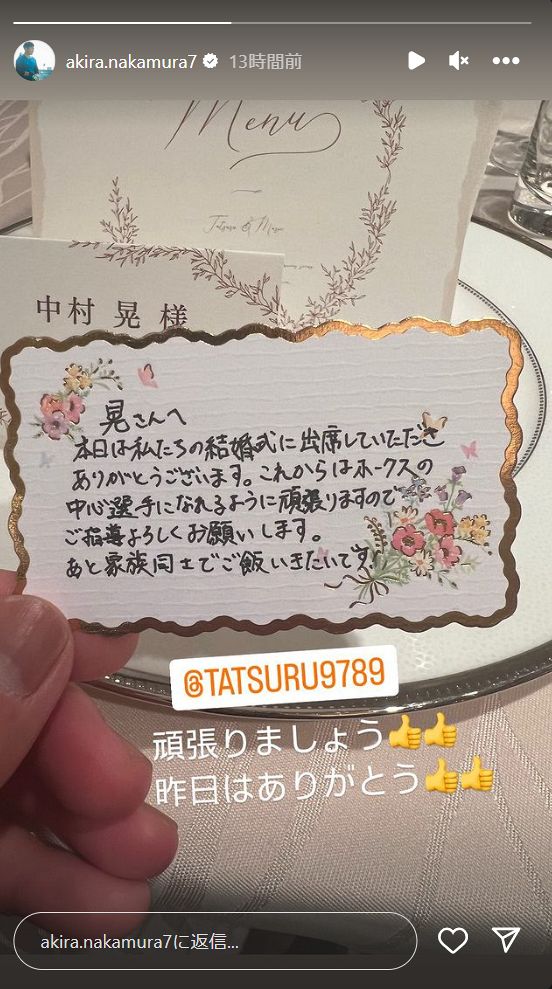 akira.nakamura7 13時間前
Menu
中村 晃 様
晃さんへ
本日は私たちの結婚式に出席していただき
ありがとうございます。これからはホークスの
中心選手になれるように頑張りますので
ご指導よろしくお願いします。
あと家族同士でご飯いきたいです。
@TATSURU9789
頑張りましょう👍👍
昨日はありがとう👍👍
akira.nakamura7に返信...